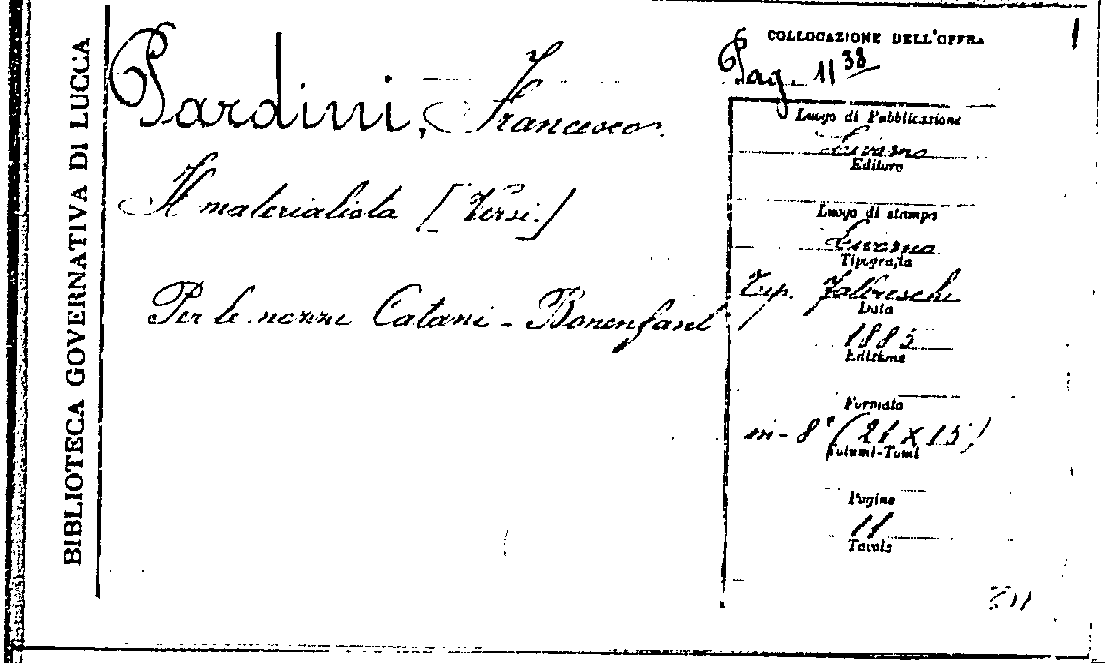 BIBLIOTECA GOVERNATIVA DI LUCCA
Pardini, Francesco.
Il materialista [Versi.]
Per le nozze Catani - Bonenfant
COLLOCAZIONE DELL'OPERA
Pag. 11 38
Luogo di Pubblicazione
Livorno
Editore
Luogo di stampa
Livorno
Tipografia
Tip. Fabbreschi
Data
1885
Edizione
Formato
in-8° (21 x 15)
Volumi-Tomi
Pagine
11
Tavole